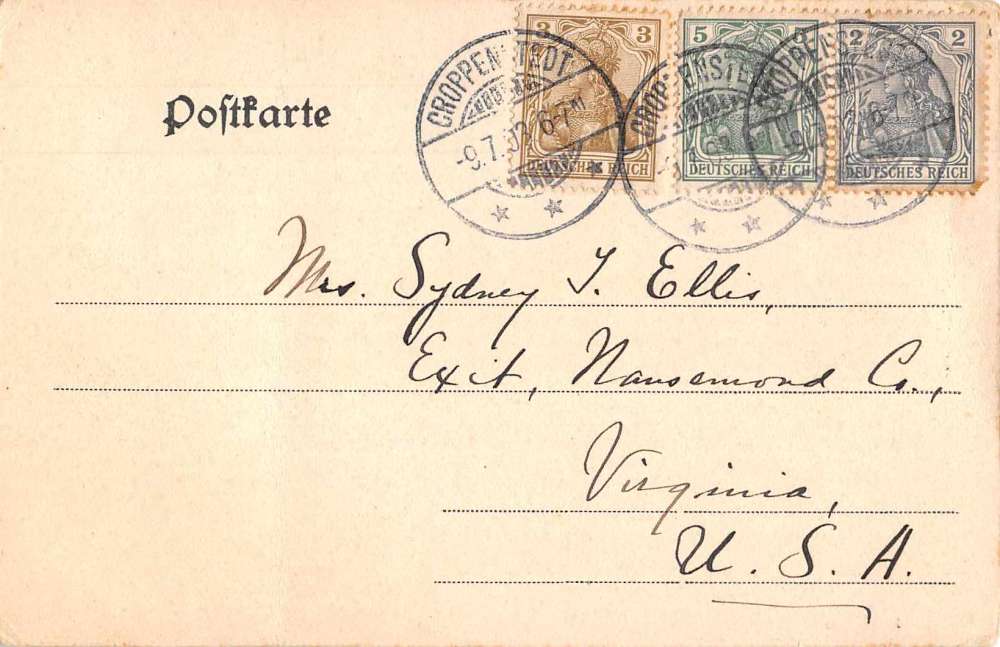 3 3
DEUTSCHES REICH
5
DEUTSCHES REICH
2 2
DEUTSCHES REICH
CROPPENSTEDT
-9.7.03 6-7 N
Postkarte
Mrs. Sydney T. Ellis,
Exit, Nansemond Co.,
Virginia,
U. S. A.